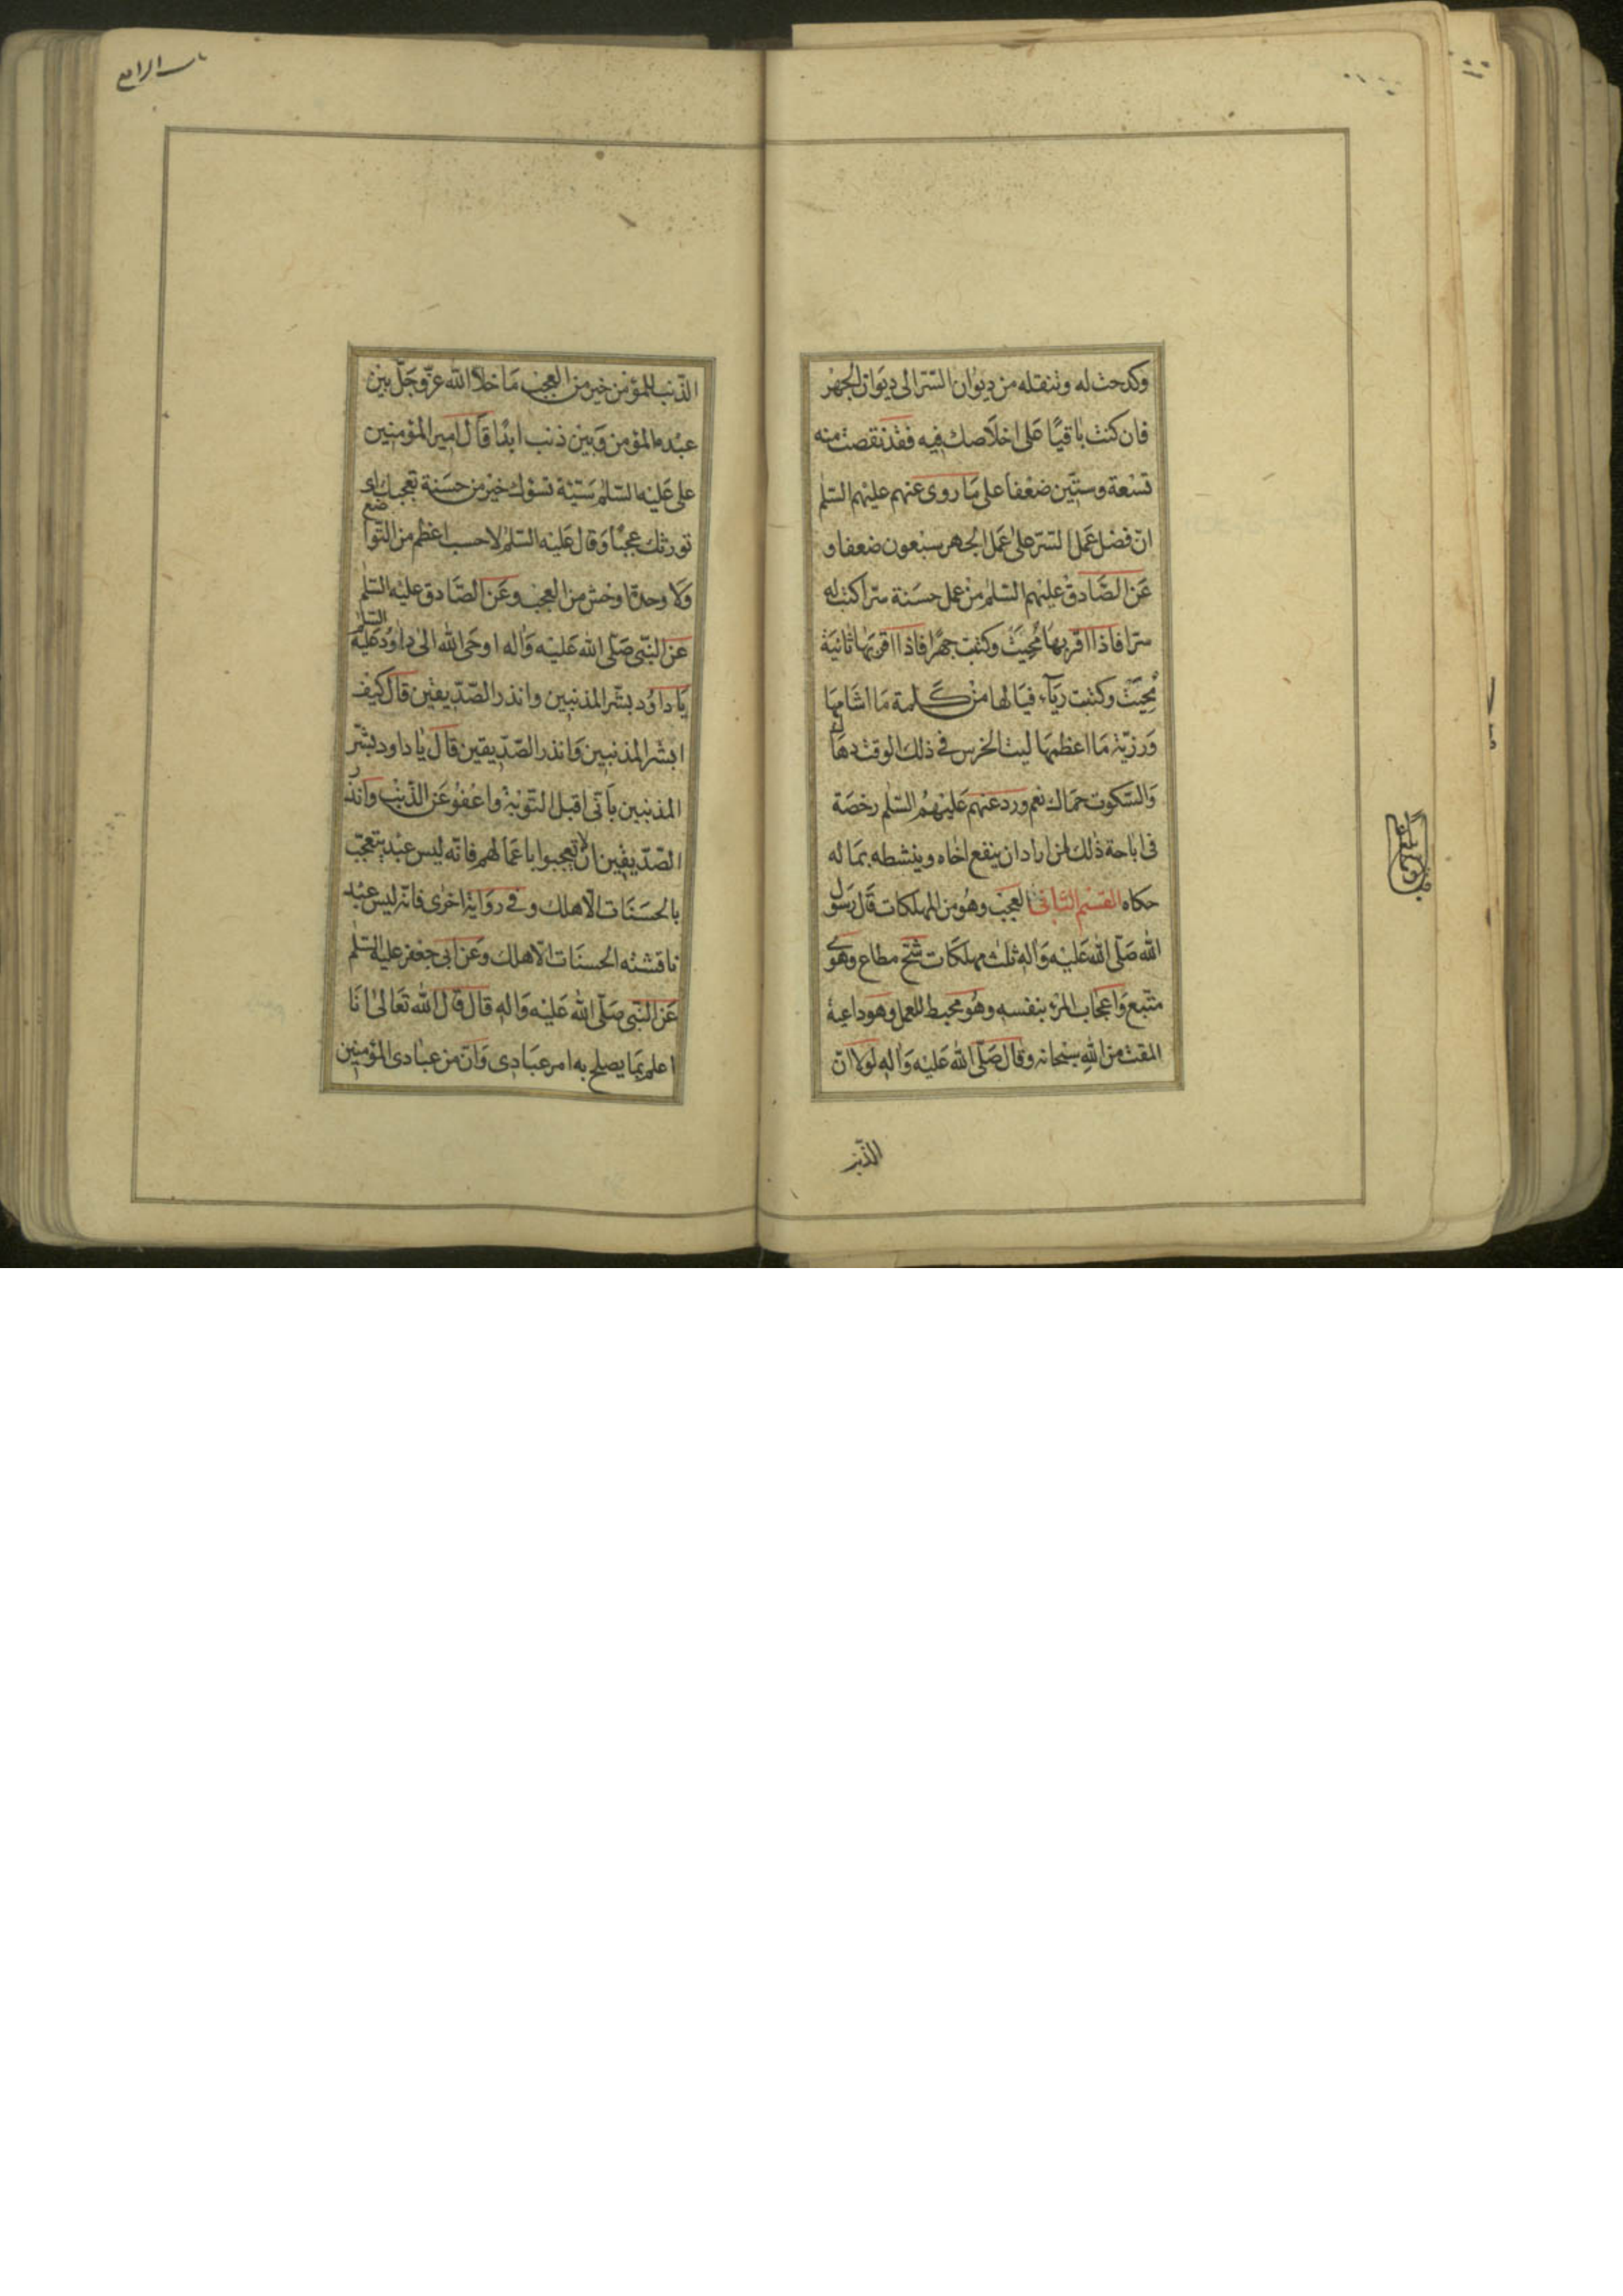 وكدحت له وتنقله من ديوان السّتر الى ديوان الجهر
فان كنت باقيًا على اخلاصك فيه فقد نقصت منه
تسعة وستّين ضعفا على ما روى عنهم عليهم السّلم
انّ فضل عمل السّتر على عمل الجهر سبعون ضعفا و
عن الصّادق عليهم السّلم من عمل حسنة سّرا كتبت له
سرّا فاذا اقرّ بها مُحِيَتْ وكتبت جهرًا فاذا اقرّ بها ثانيَة
مُحِيَتْ وكتبت ريآء فيا لها من كلمة ما اشامها
ورزيّة ما اعظمها ليت الخرس في ذلك الوقت دهاك
والسّكوت حماك نعم ورد عنهم عليهم السّلم رخصة
فى اباحة ذلك لمن اراد ان ينفع اخاه وينشطه بما له
حكاه القسم الثّانى العجب وهو من المهلكات قال رسول
الله صلّى الله عليه واله ثلث مهلكات شحّ مطاع وهوى
متّبع واعجاب المرء بنفسه وهو محبط للعمل وهو داعية
المقت من الله سبحانه وقال صلّى الله عليه واله لولا انّ
الذّنب
باب الرابع
الذّنب للمؤمن خير من العجب ما خلا الله عزّ وجلّ بين
عبده المؤمن وبين ذنب ابدًا قال امير المؤمنين
على عليه السّلم سيّئة تسؤك خير من حسنة تعجبك اى
تورثك عجبًا وقال عليه السّلم لا حسب اعظم من التّواضع
ولا وحدة اوحش من العجب وعن الصّادق عليه السّلم
عن النّبى صلّى الله عليه واله اوحى الله الى داود عليه السّلم
يا داود بشّر المذنبين وانذر الصّدّيقين قال كيف
ابشر المذنبين وانذر الصّدّيقين قال يا داود بشّر
المذنبين بانّى اقبل التّوبة واعفو عن الذّنب وانذر
الصّدّيقين ان لا يعجبوا باعمالهم فانّه ليس عبد يتعجّب
بالحسنات الّا هلك وفي رواية اخرى فانّه ليس عبد
ناقشته الحسنات الّا هلك وعن ابى جعفر عليه السّلم
عن النّبى صلّى الله عليه واله قال قال الله تعالى انا
اعلم بما يصلح به امر عبادى وانّ من عبادى المؤمنين